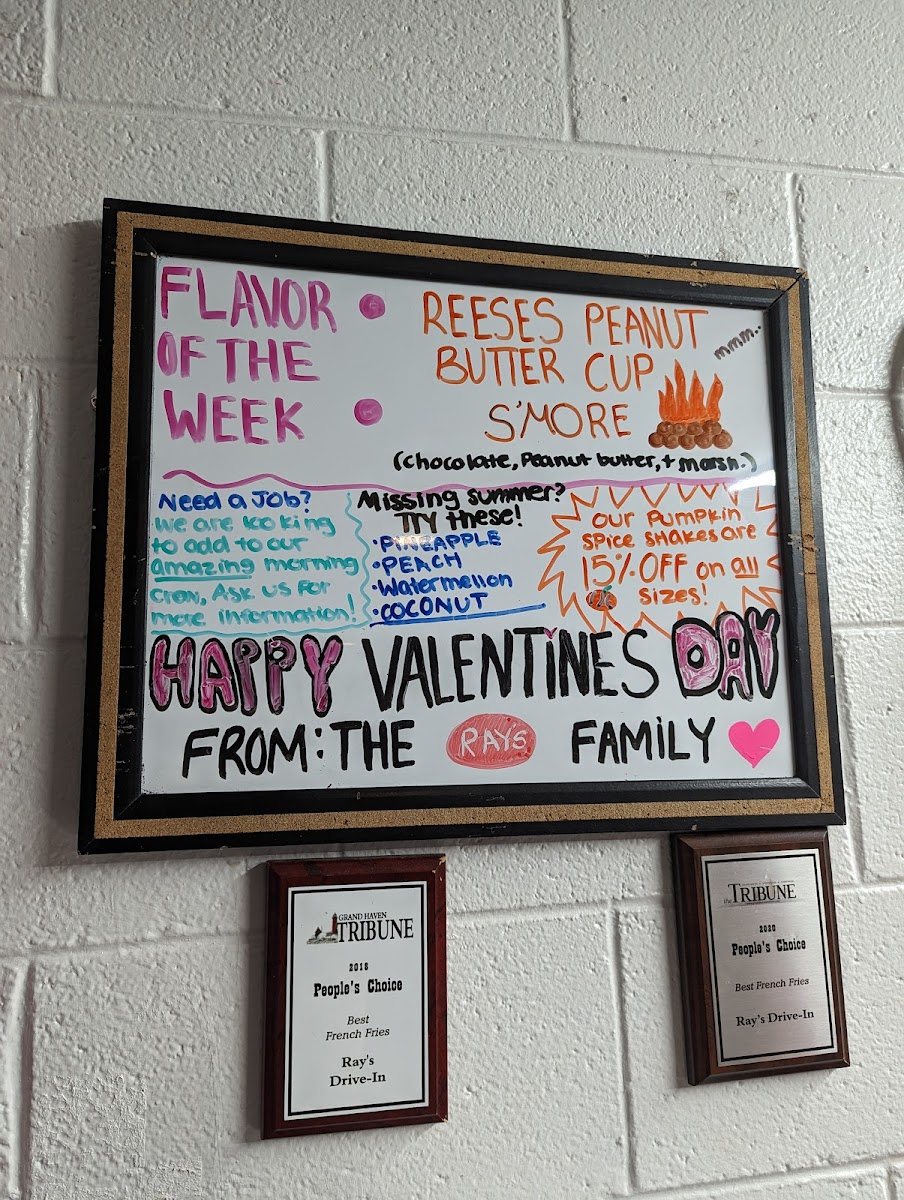 FLAVOR :
OF THE
WEEK
REESES PEANUT
BUTTER CUP
S'MORE
mmm..
(chocolate, Peanut butter, + marsh.)
Need a JOB?
We are looking
to add to our
amazing morning
crew, ASK us FOR
more information!
Missing summer?
TRY these!
• PINEAPPLE
• PEACH
• Watermellon
• COCONUT
OUR PUMPKIN
SPICE SHAKES ARE
15% OFF on all
sizes!
HAPPY VALENTINES DAY
FROM: THE RAYS FAMILY
GRAND HAVEN
TRIBUNE
2018
People's Choice
Best
French Fries
Ray's
Drive-In
the TRIBUNE
2020
People's Choice
Best French Fries
Ray's Drive-In